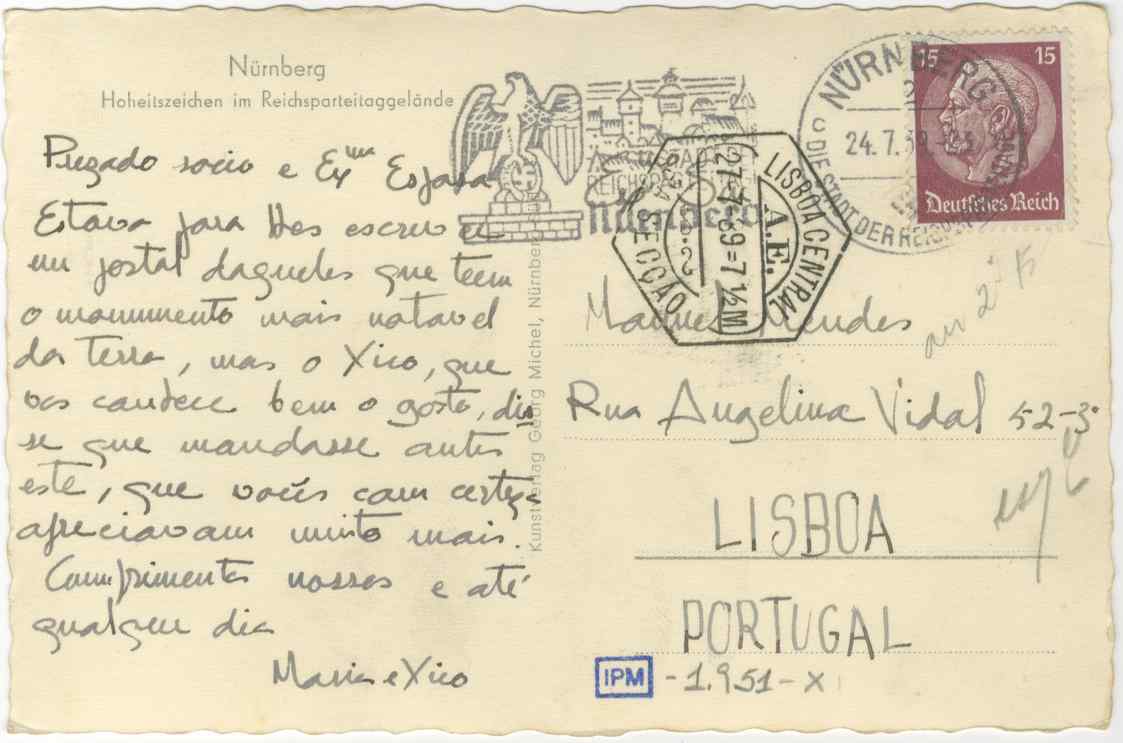 Nürnberg
Hoheitszeichen im Reichsparteitaggelände
Prezado socio e Exma Esposa
Estava para lhes escrever
um postal daqueles que teem
o monumento mais notavel
da Terra, mas o Xico, que
vos conhece bem o gosto, diz
se que mandasse antes
este, que vocês com certeza
apreciavam muito mais.
Cumprimentos nossos e até
qualquer dia
Maria e Xico
Kunstverlag Georg Michel, Nürnberg
Nürnberg
NÜRNBERG
24.7.39
DIE STADT DER REICHS
15 15
Deutsches Reich
LISBOA CENTRAL
A.E.
27=7=39=7½M
SECÇÃO
Manuel Mendes
Rua Angelina Vidal 52-3º
LISBOA
PORTUGAL
IPM - 1.951 - X